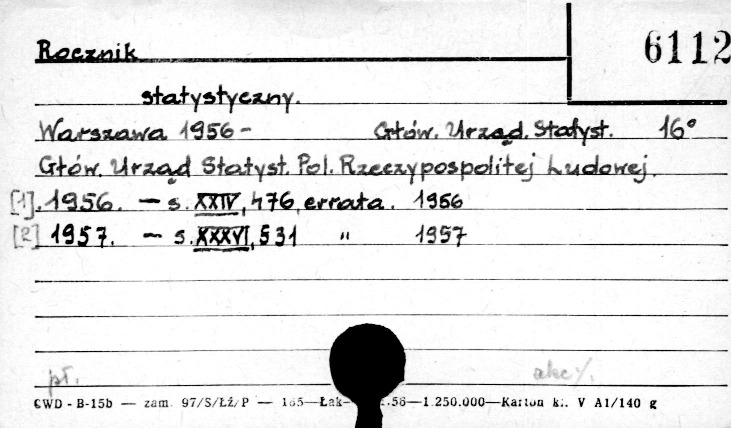 Rocznik
6112
statystyczny.
Warszawa 1956 - Głów. Urząd. Statyst. 16°
Głów. Urząd Statyst. Pol. Rzeczypospolitej Ludowej.
[1]. 1956. — s. XXIV, 476, errata. 1956
[2] 1957. — s. XXXVI, 531 " 1957
pł.
CWD - B-15b — zam. 97/S/Łź/P — 165—Łak- .56—1.250.000—Karton kl. V A1/140 g